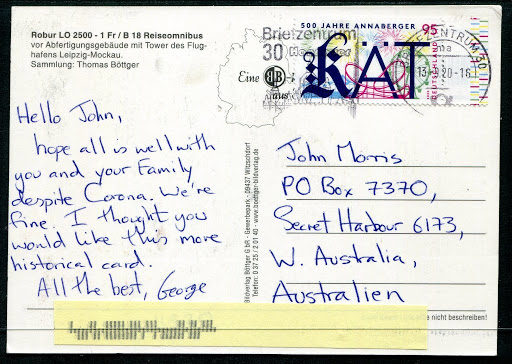 Robur LO 2500 - 1 Fr / B 18 Reiseomnibus
vor Abfertigungsgebäude mit Tower des Flug-
hafens Leipzig-Mockau.
Sammlung: Thomas Böttger
500 JAHRE ANNABERGER
95
KÄT
DEUTSCHLAND
Briefzentrum
30
Eine
aus
BRIEFZENTRUM 30
20-16
Hello John,
hope all is well with
you and your Family
despite Corona. We're
fine. I thought you
would like this more
historical card.
All the best, George
Bildverlag Böttger GbR - Gewerbepark - 09437 Witzschdorf
Telefon: 0 37 25 / 2 01 40 - www.boettger-bildverlag.de
John Morris
PO Box 7370,
Secret Harbour 6173,
W. Australia,
Australien
nicht beschreiben!